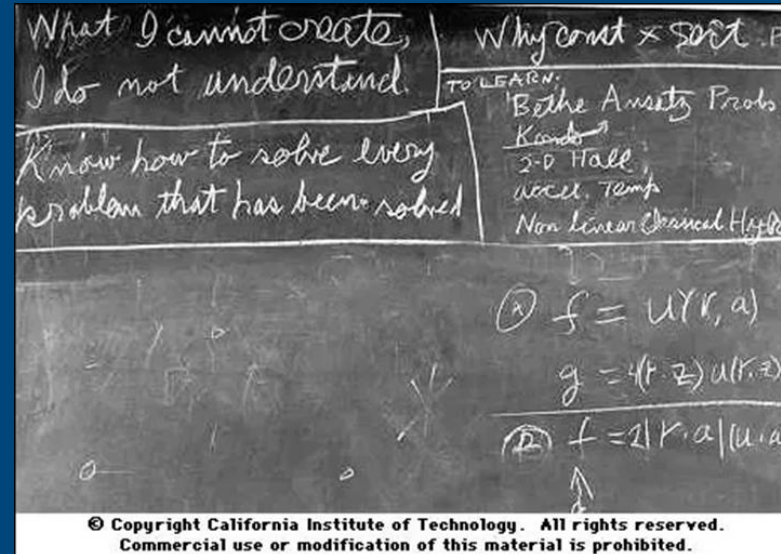 What I cannot create,
I do not understand.
Know how to solve every
problem that has been solved
Why const × sort .P
TO LEARN:
Bethe Ansatz Prob
Kondo
2-D Hall
accel. Temp
Non linear Classical Hydro
Ⓐ f = u(r, a)
g = 4(r·z) u(r, z)
Ⓑ f = 2|r·a|(u·a
© Copyright California Institute of Technology. All rights reserved.
Commercial use or modification of this material is prohibited.